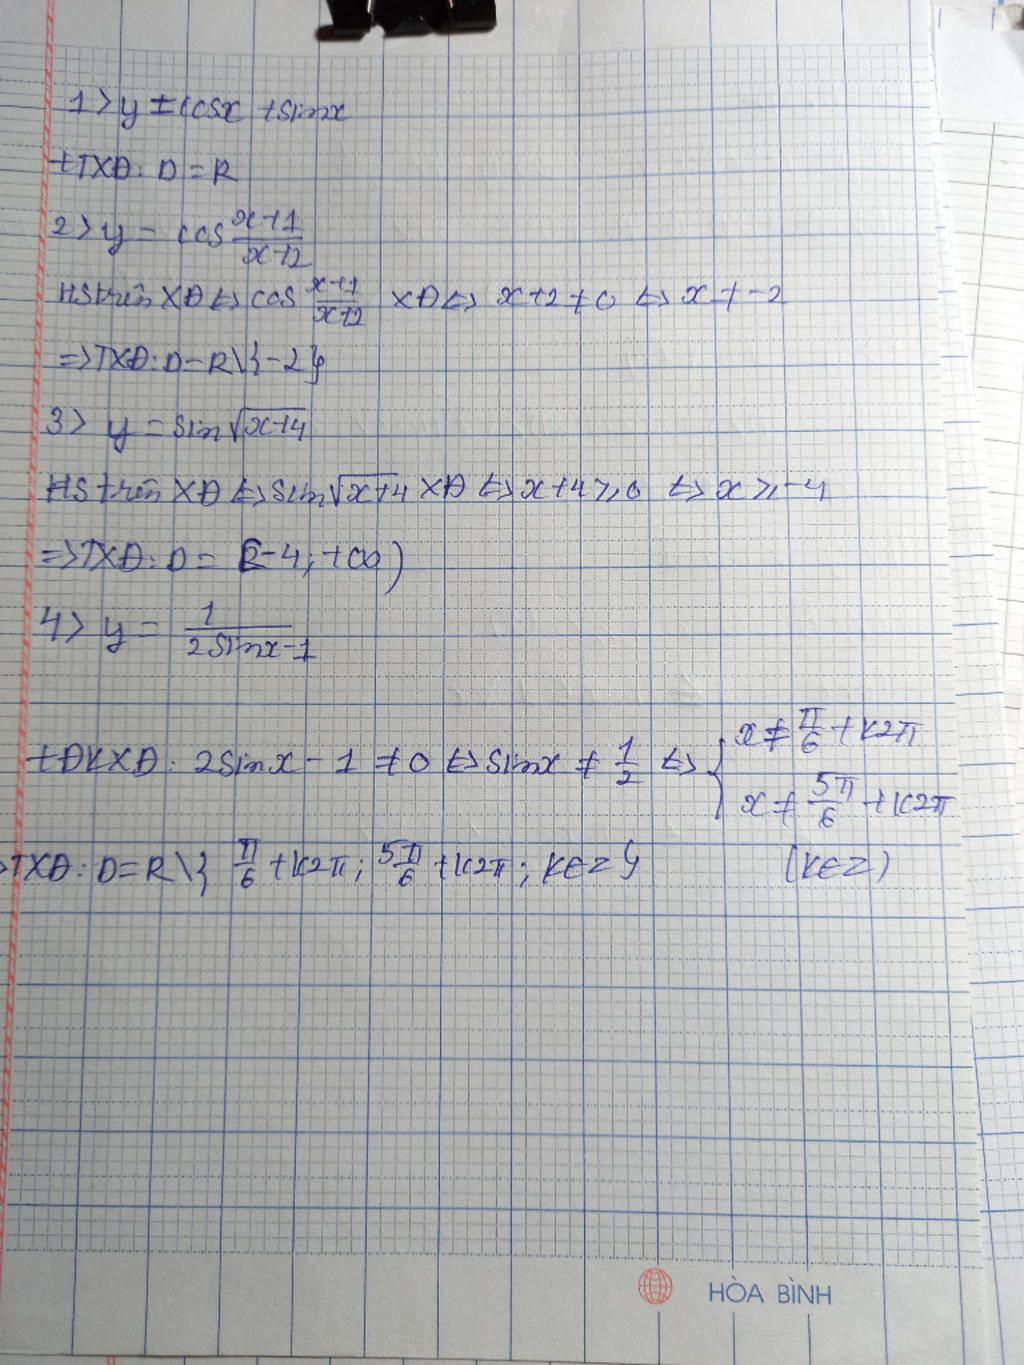 1> y = cosx + sinx
+TXĐ: D = R
2> y = cos x+1/x+2
HS trên XĐ <=> cos x+1/x+2 XĐ <=> x+2 ≠ 0 <=> x ≠ -2
=> TXĐ: D = R\{-2}
3> y = sin√x+4
HS trên XĐ <=> sin√x+4 XĐ <=> x+4 ≥ 0 <=> x ≥ -4
=> TXĐ: D = [-4; +∞)
4> y = 1/2sinx-1
+ĐKXĐ: 2sinx - 1 ≠ 0 <=> sinx ≠ 1/2 <=> { x ≠ π/6 + k2π
x ≠ 5π/6 + k2π
(k∈Z)
>TXĐ: D = R\{ π/6 + k2π; 5π/6 + k2π; k∈Z}
HÒA BÌNH